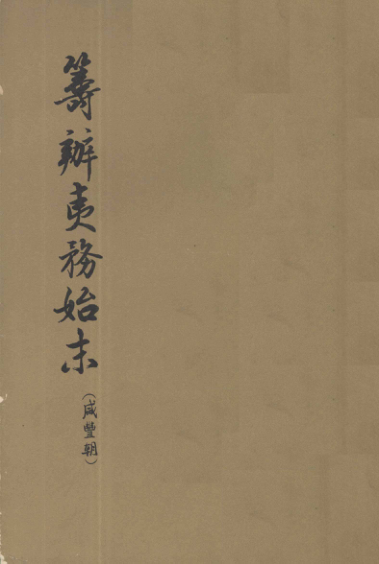 籌辦夷務始末
(咸豐朝)